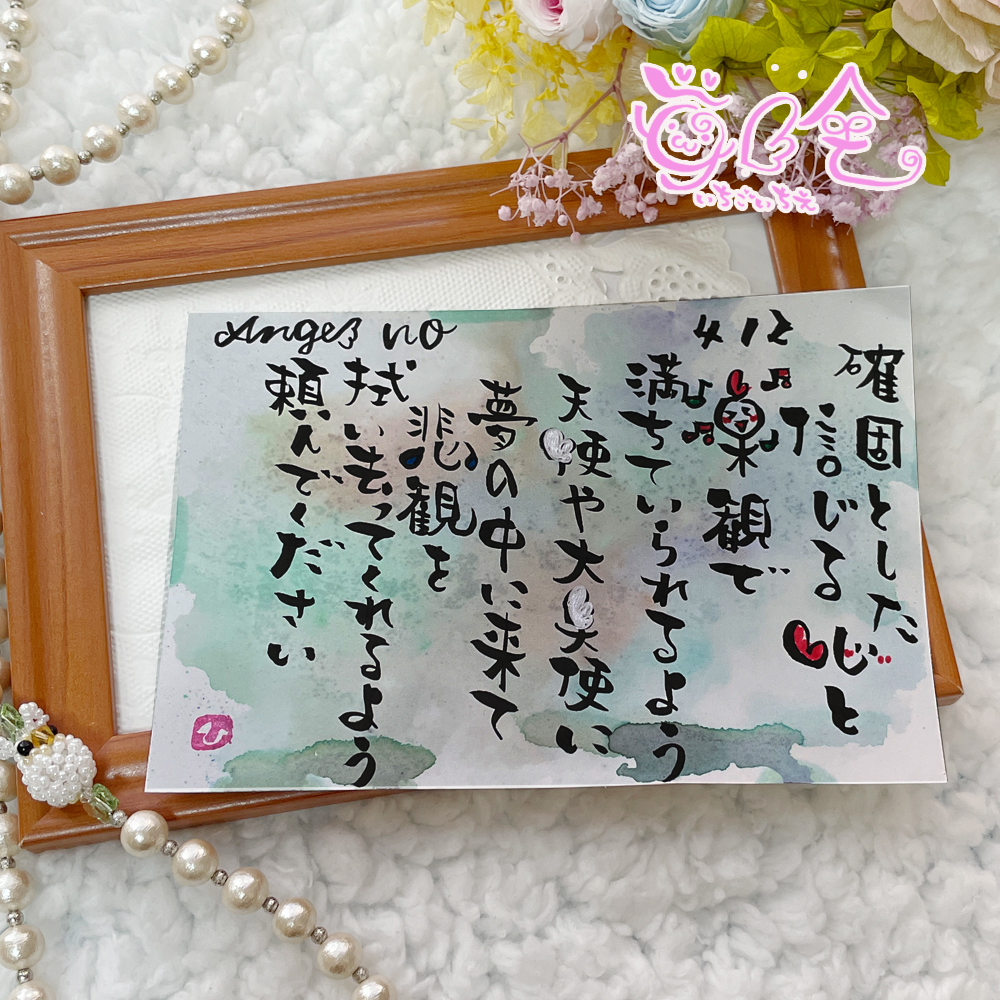 Angel no 412
確固とした
信じる心と
楽観で
満ちていられるよう
天使や大天使に
夢の中に来て
悲観を
拭い去ってくれるよう
頼んでください
いちごいちえ